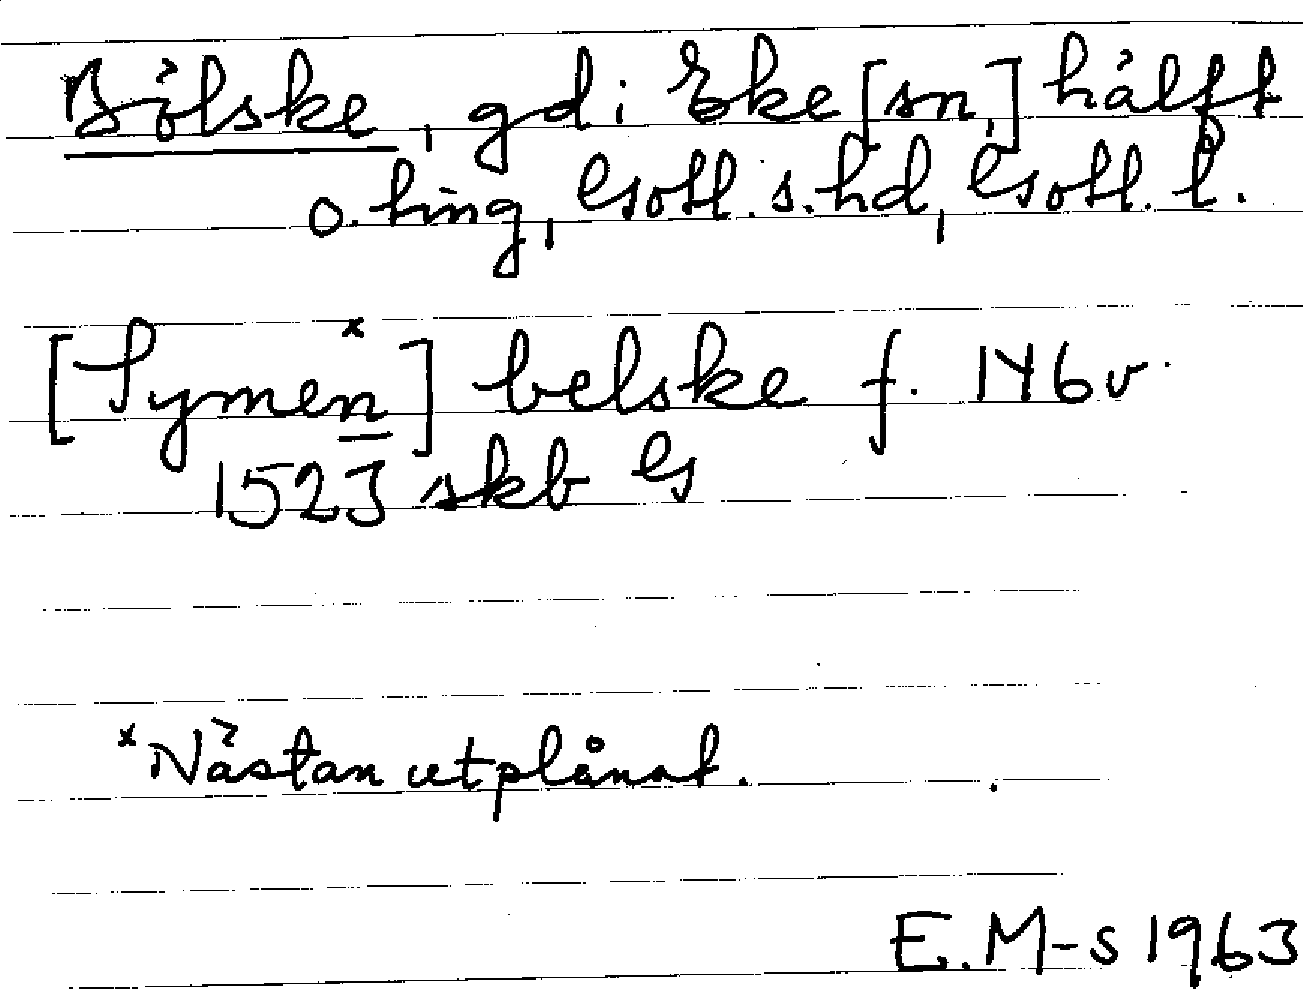 Bölske, gd i Eke [sn,] hälft
o. ting, Gotl. s. hd, Gotl. l.
[Symen̅ˣ] belske f. 146v.
1523 skb G
ˣNästan utplånat.
E. M-s 1963